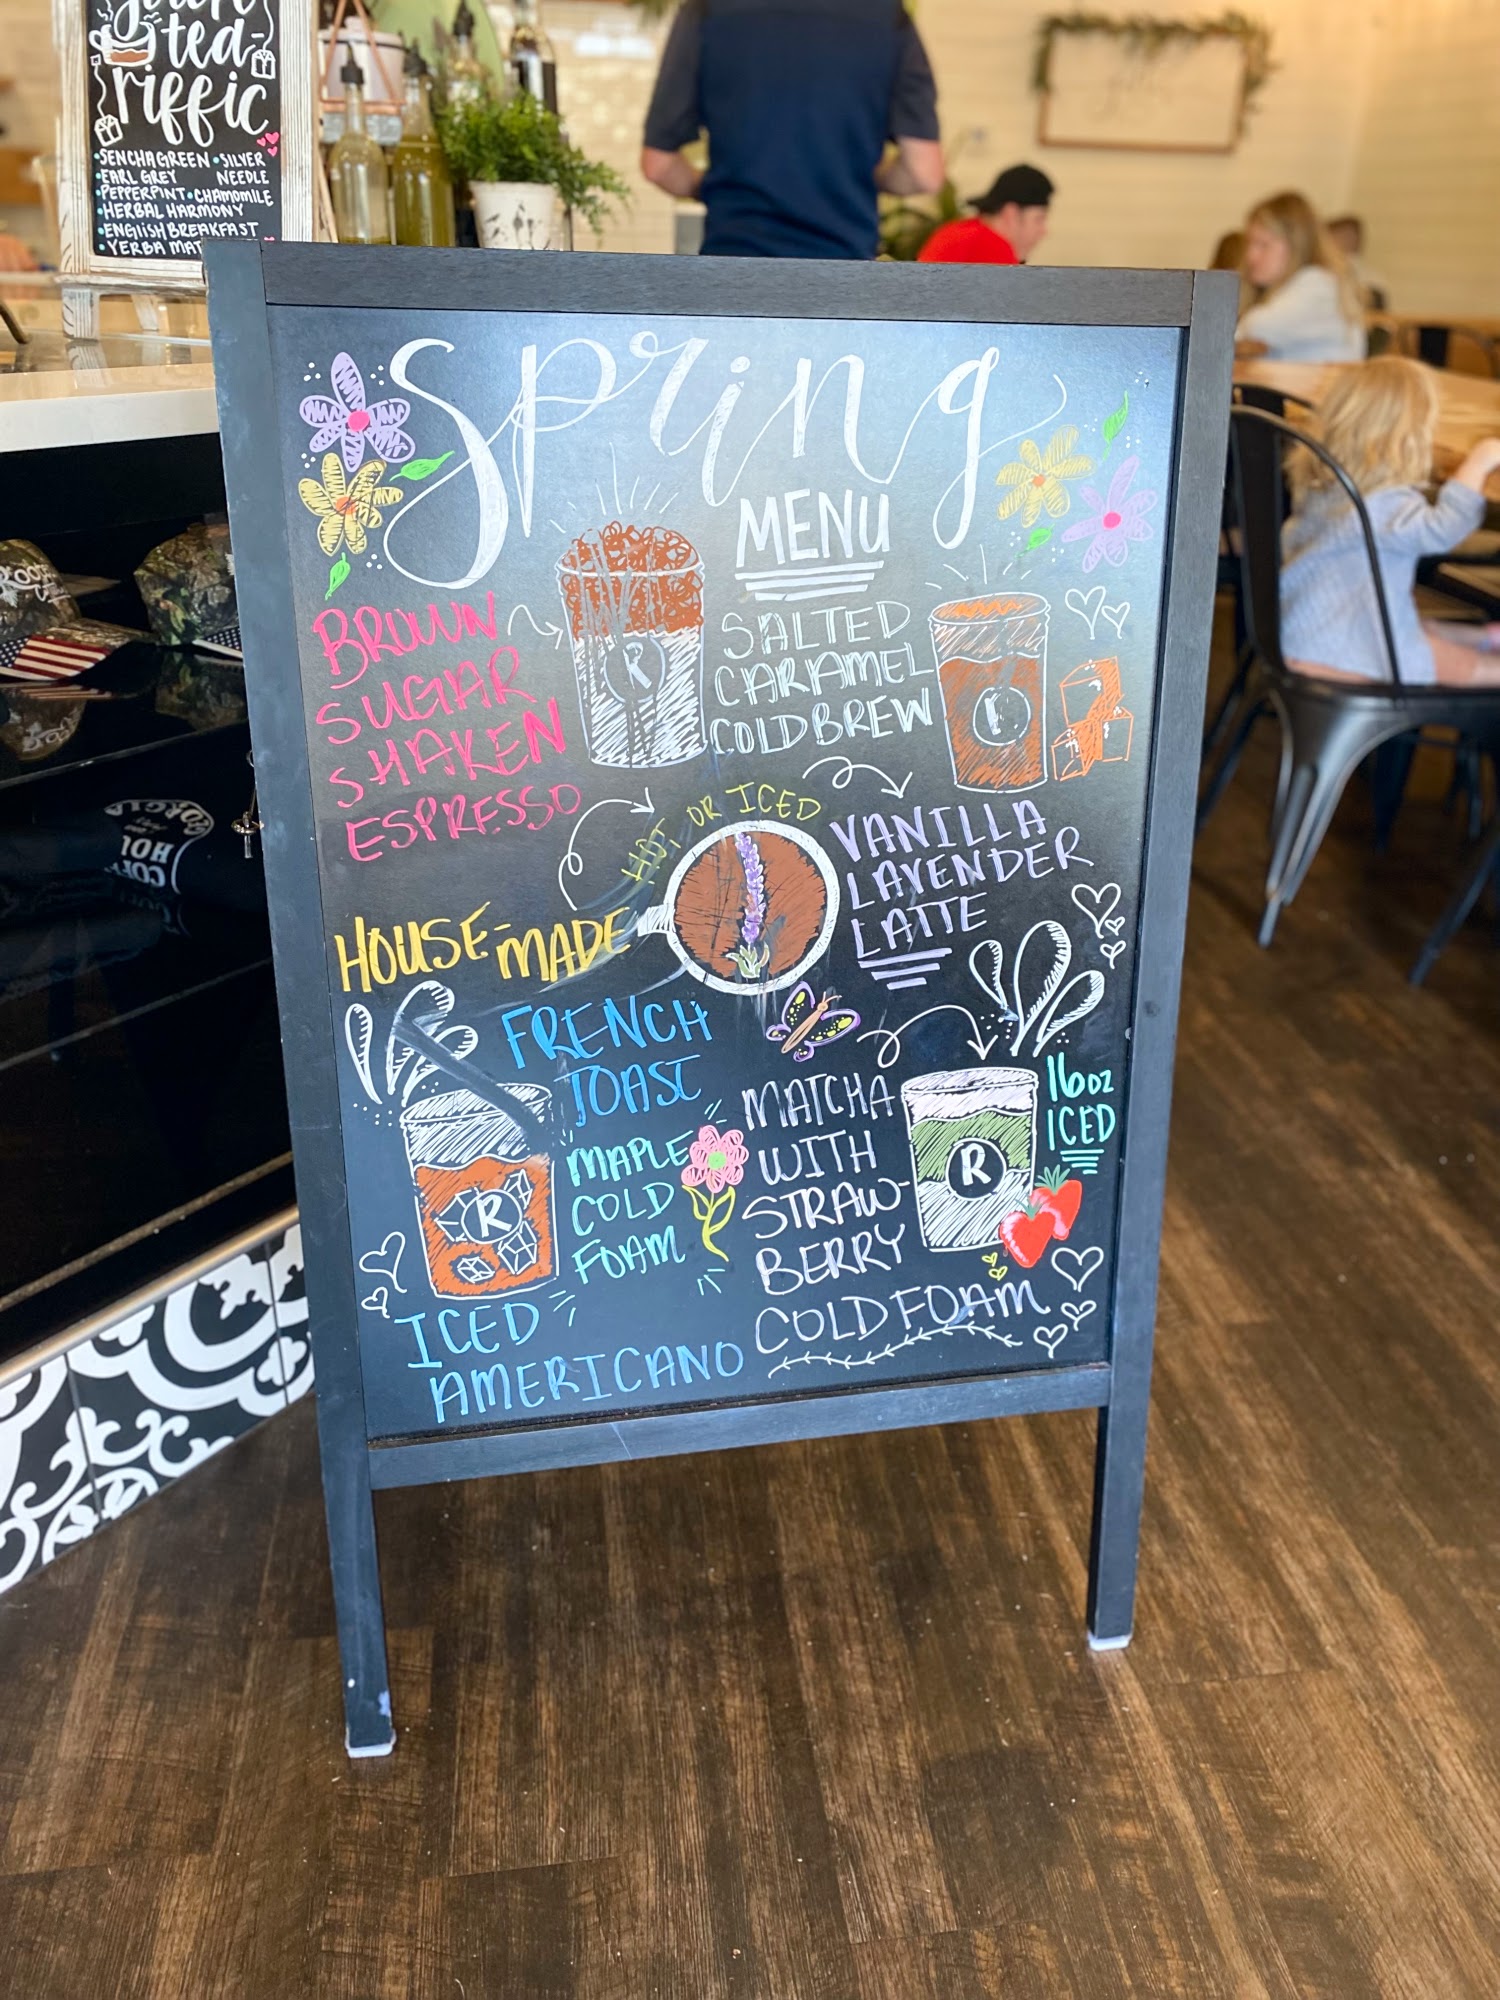 tea-
riffic
•SENCHA GREEN •SILVER
•EARL GREY NEEDLE
•PEPPERPINT •CHAMOMILE
•HERBAL HARMONY
•ENGLISH BREAKFAST
•YERBA
Spring
MENU
BROWN
SUGAR
SHAKEN
ESPRESSO
R
SALTED
CARAMEL
COLD BREW
HOT OR ICED
VANILLA
LAVENDER
LATTE
HOUSE-MADE
FRENCH
TOAST
MAPLE
COLD
FOAM
R
ICED
AMERICANO
MATCHA
WITH
STRAW-
BERRY
COLD FOAM
R
16oz
ICED